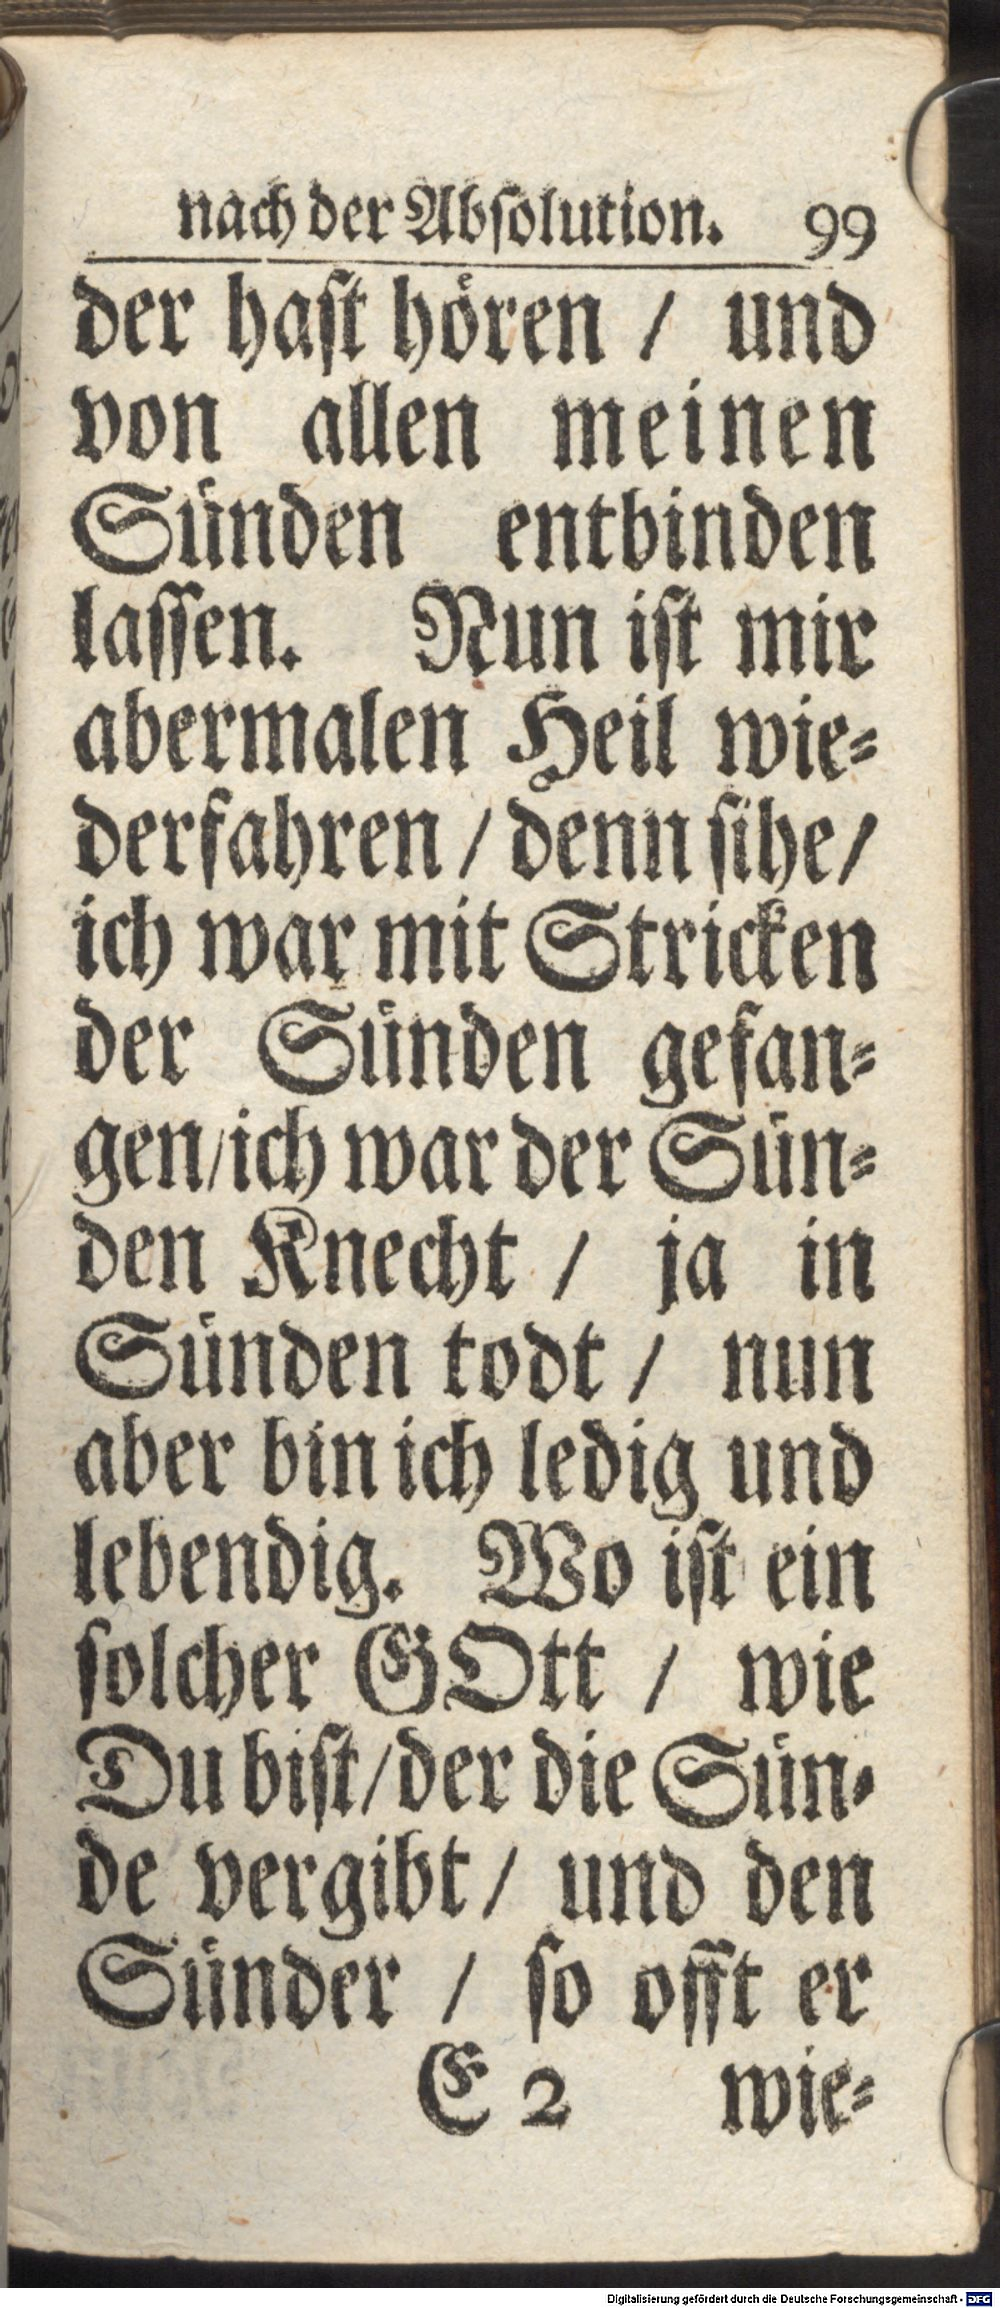 nach der Absolution. 99
der hast hören / und
von allen meinen
Sünden entbinden
lassen. Nun ist mir
abermalen Heil wie-
derfahren / denn sihe /
ich war mit Stricken
der Sünden gefan-
gen / ich war der Sün-
den Knecht / ja in
Sünden todt / nun
aber bin ich ledig und
lebendig. Wo ist ein
solcher GOtt / wie
Du bist / der die Sün-
de vergibt / und den
Sünder / so offt er
E 2 wie-
Digitalisierung gefördert durch die Deutsche Forschungsgemeinschaft - DFG